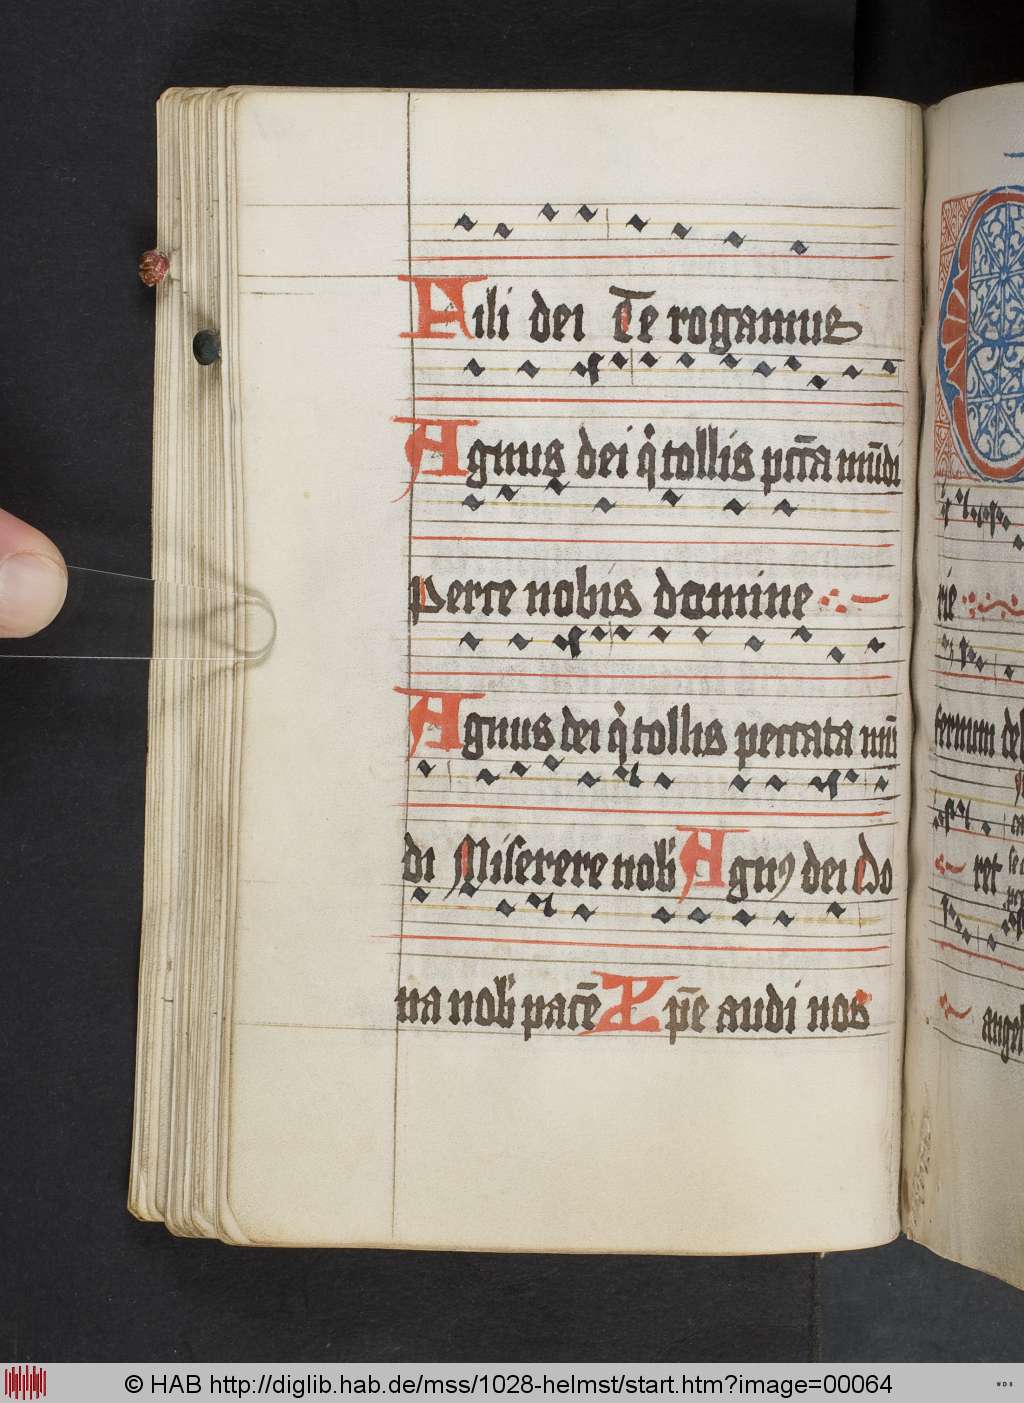 Fili dei Te rogamus
Agnus dei q̇ tollis pctā mūdi
Parce nobis domine
Agnus dei q̇ tollis peccata mū
di Miserere nob Agnꝰ dei Do
na nob pacē Xpē audi nos
rie
ternum dei
ret
angel
© HAB http://diglib.hab.de/mss/1028-helmst/start.htm?image=00064